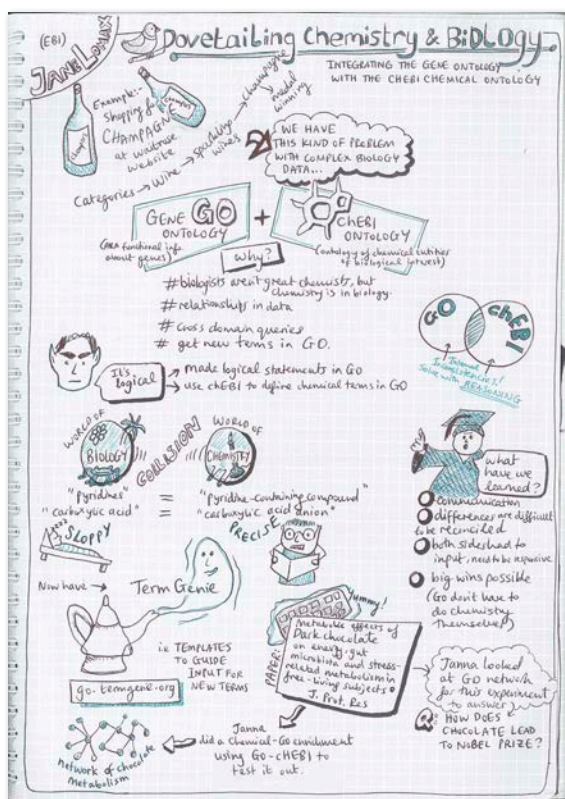 (EBI)
JANE LOMAX
Dovetailing Chemistry & BiOLOgy
INTEGRATING THE GENE ONTOLOGY
WITH THE CHEBI CHEMICAL ONTOLOGY
Example:-
Shopping for
CHAMPAGNE
at waitrose
website
Categories → Wine → sparkling wines → champagne → medal winning
WE HAVE
THIS KIND OF PROBLEM
WITH COMPLEX BIOLOGY
DATA...
GENE GO
ONTOLOGY
(AKA functional info.
about genes)
+
ChEBI
ONTOLOGY
(ontology of chemical entities
of biological interest)
why?
# biologists aren't great chemists, but
chemistry is in biology.
# relationships in data
# cross domain queries
# get new terms in GO.
GO
chEBI
Internal
Inconsistencies!
Solve with REASONING
It's
logical
→ made logical statements in GO
→ use chEBI to define chemical terms in GO
WORLD OF
BIOLOGY
COLLISION
WORLD OF
CHEMISTRY
"pyridines" = "pyridine-containing compound"
"carboxylic acid" = "carboxylic acid anion"
ZZZZ
SLOPPY
PRECISE
what
have we
learned?
communication
differences are difficult
to be reconciled
both sides had to
input, need to be responsive
big wins possible
(Go don't have to
do chemistry
themselves)
Now have →
Term Genie
i.e TEMPLATES
TO GUIDE
INPUT FOR
NEW TERMS
go.termgenie.org
Yummy!
PAPER:
Metabolic effects of
Dark chocolate
on energy, gut
microbiota and stress-
related metabolism in
free-living subjects
J. Prot. Res
Janna looked
at GO network
for this experiment
to answer
Q: HOW DOES
CHOCOLATE LEAD
TO NOBEL PRIZE?
Janna
did a chemical-Go enrichment
using GO-chEBI to
test it out.
network of chocolate
Metabolism